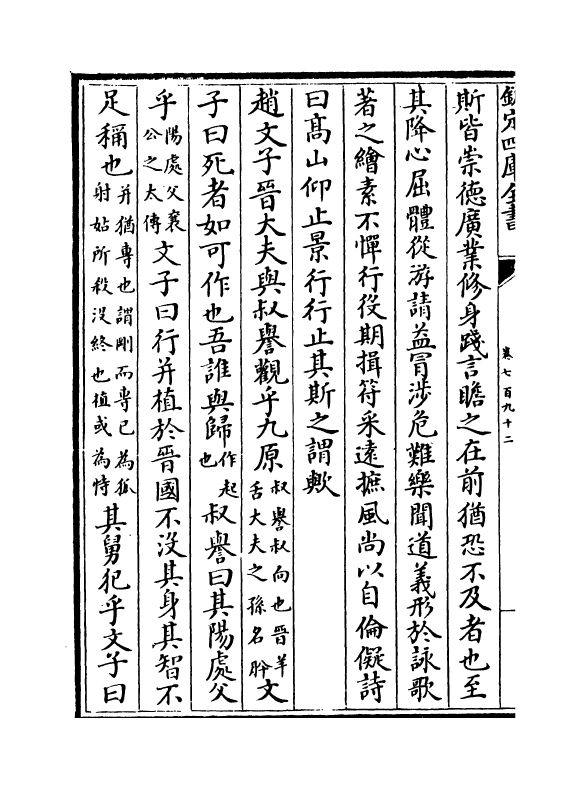 欽定四庫全書
卷七百九十二
斯皆崇德廣業修身踐言瞻之在前猶恐不及者也至
其降心屈體從游請益冒涉危難樂聞道義形於詠歌
著之繪素不憚行役期揖符采逺摭風尚以自倫儗詩
曰髙山仰止景行行止其斯之謂歟
趙文子晉大夫與叔譽觀乎九原叔譽叔向也晉羊舌大夫之孫名肸文
子曰死者如可作也吾誰與歸作起也叔譽曰其陽處父
乎陽處父襄公之太傅文子曰行并植於晉國不没其身其智不
足稱也并猶專也謂剛而專已為狐射姑所殺没終也植或為恃其舅犯乎文子曰